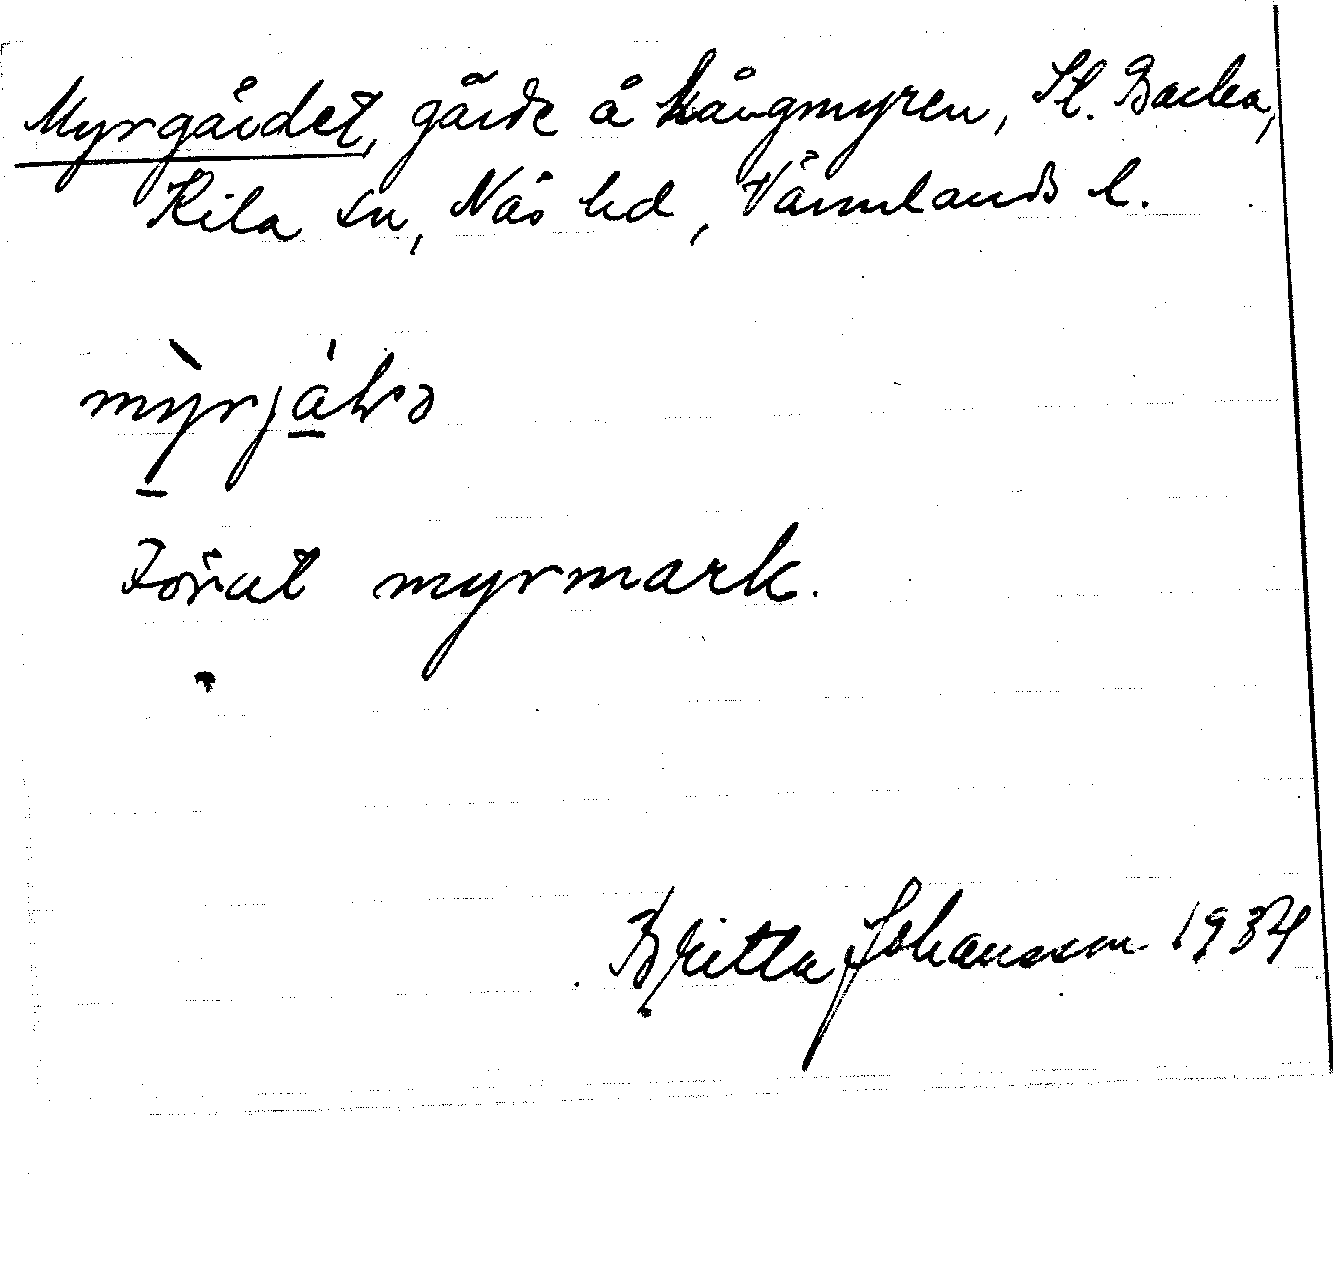 Myrgärdet, gärde å Långmyren, St. Backa,
Kila sn, Näs hd, Värmlands l.
Torvat myrmark.
Britta Johansson 1934